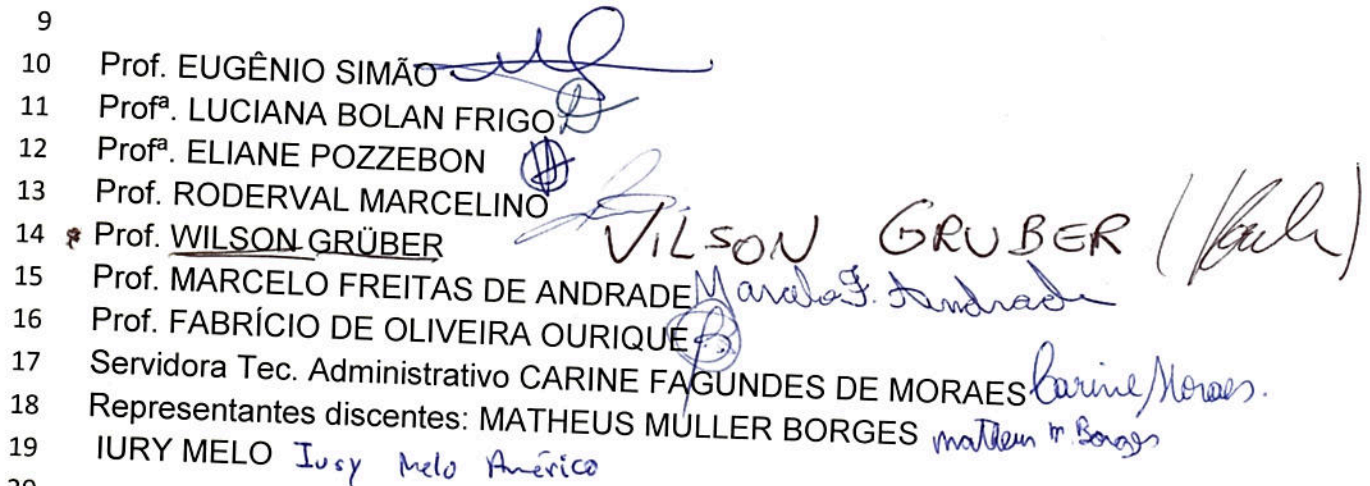 9
10 Prof. EUGÊNIO SIMÃO
11 Profª. LUCIANA BOLAN FRIGO
12 Profª. ELIANE POZZEBON
13 Prof. RODERVAL MARCELINO
14 Prof. WILSON GRÜBER VILSON GRUBER
15 Prof. MARCELO FREITAS DE ANDRADE Marcelo F. Andrade
16 Prof. FABRÍCIO DE OLIVEIRA OURIQUE
17 Servidora Tec. Administrativo CARINE FAGUNDES DE MORAES Carine Moraes.
18 Representantes discentes: MATHEUS MULLER BORGES Matheus M. Borges
19 IURY MELO Iury Melo Américo
20